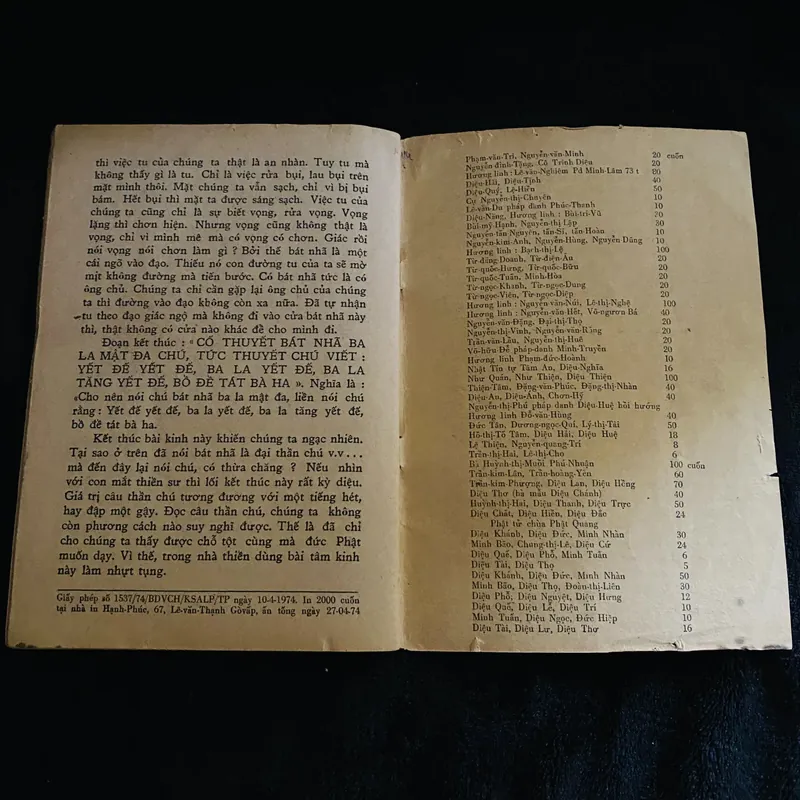 thì việc tu của chúng ta thật là an nhàn. Tuy tu mà
không thấy gì là tu. Chỉ là việc rửa bụi, lau bụi trên
mặt mình thôi. Mặt chúng ta vẫn sạch, chỉ vì bị bụi
bám. Hết bụi thì mặt ta được sáng sạch. Việc tu của
chúng ta cũng chỉ là sự biết vọng, rửa vọng. Vọng
lặng thì chơn hiện. Nhưng vọng cũng không thật là
vọng, chỉ vì mình mê mà có vọng có chơn. Giác rồi
nói vọng nói chơn làm gì ? Bởi thế bát nhã là một
cái ngõ vào đạo. Thiếu nó con đường tu của ta sẽ mờ
mịt không đường mà tiến bước. Có bát nhã tức là có
ông chủ. Chúng ta chỉ cần gặp lại ông chủ của chúng
ta thì đường vào đạo không còn xa nữa. Đã tự nhận
tu theo đạo giác ngộ mà không đi vào cửa bát nhã này
thì, thật không có cửa nào khác để cho mình đi.
Đoạn kết thúc : « CỐ THUYẾT BÁT NHÃ BA
LA MẬT ĐA CHÚ, TỨC THUYẾT CHÚ VIẾT :
YẾT ĐẾ YẾT ĐẾ, BA LA YẾT ĐẾ, BA LA
TĂNG YẾT ĐẾ, BỒ ĐỀ TÁT BÀ HA ». Nghĩa là :
«Cho nên nói chú bát nhã ba la mật đa, liền nói chú
rằng : Yết đế yết đế, ba la yết đế, ba la tăng yết đế,
bồ đề tát bà ha.
Kết thúc bài kinh này khiến chúng ta ngạc nhiên.
Tại sao ở trên đã nói bát nhã là đại thần chú v.v...
mà đến đây lại nói chú, có thừa chăng ? Nếu nhìn
với con mắt thiền sư thì lối kết thúc này rất kỳ diệu.
Giá trị câu thần chú tương đương với một tiếng hét,
hay đập một gậy. Đọc câu thần chú, chúng ta không
còn phương cách nào suy nghĩ được. Thế là đã chỉ
cho chúng ta thấy được chỗ tột cùng mà đức Phật
muốn dạy. Vì thế, trong nhà thiền dùng bài tâm kinh
này làm nhựt tụng.
Giấy phép số 1537/74/BDVCH/KSALP/TP ngày 10-4-1974. In 2000 cuốn
tại nhà in Hạnh-Phúc, 67, Lê-văn-Thạnh Gòvấp, ấn tống ngày 27-04-74
Phạm-văn-Trí, Nguyễn-văn-Minh 20 cuốn
Nguyễn-đình-Tặng, Cô Trinh Diệu 20
Hương linh : Lê-văn-Nghiêm Pd Minh-Lâm 73 t 80
Diệu-Hải, Diệu-Tịnh 40
Diệu-Quý, Lê-Hiền 50
Cụ Nguyễn-thị-Chuyên 10
Lê-văn-Du pháp danh Phúc-Thanh 10
Diệu-Năng, Hương linh : Bùi-trí-Vũ 20
Bùi-mỹ-Hạnh, Nguyễn-thị Lập 30
Nguyễn-tấn Nguyên, tấn-Sĩ, tấn-Hoàn 10
Nguyễn-kim-Anh, Nguyễn-Hùng, Nguyễn Dũng 10
Hương linh : Bạch-thị-Lệ 100
Từ-đăng-Doanh, Từ-điện-Âu 20
Từ-quốc-Hưng, Từ-quốc-Bửu 20
Từ-quốc-Tuấn, Minh-Hòa 20
Từ-ngọc-Khanh, Từ-ngọc-Dung 20
Từ-ngọc-Viên, Từ-ngọc-Diệp 20
Hương linh : Nguyễn-văn-Núi, Lê-thị-Nghệ 100
Hương linh : Nguyễn-văn-Hết, Võ-ngươn Bá 40
Nguyễn-văn-Đặng, Đại-thị-Thọ 20
Nguyễn-thị-Vinh, Nguyễn-văn-Rặng 20
Trần-văn-Lầu, Nguyễn-thị-Huê 20
Võ-hữu-Để pháp-danh Minh-Truyền 20
Hương linh Phạm-đức-Hoành 10
Nhật Tín tự Tâm An, Diệu-Nghĩa 16
Như Quán, Như Thiện, Diệu Thiện 100
Thiện-Tâm, Đặng-văn-Phúc, Đặng-thị-Nhàn 40
Diệu-An, Diệu-Anh, Chơn-Hỷ 40
Nguyễn-thị-Phú pháp danh Diệu-Huệ hồi hướng
Hương linh Đỗ-văn-Hùng 40
Đức Tân, Dương-ngọc-Qui, Lý-thị-Tài 50
Hồ-thị-Tố Tâm, Diệu Hải, Diệu Huệ 18
Lệ Thiện, Nguyễn-quang-Tri 8
Trần-thị-Hai, Lê-thị-Cho 6
Bà Huỳnh-thị-Muôi Phú-Nhuận 100 cuốn
Trần-kim-Lân, Trần-hoàng-Yến 60
Trần-kim-Phượng, Diệu Lan, Diệu Hồng 70
Diệu Thọ (bà mẫu Diệu Chánh) 40
Huỳnh-thị-Hai, Diệu-Thanh, Diệu Trực 50
Diệu Chất, Diệu Hiền, Diệu Đắc 24
Phật tử chùa Phật Quang
Diệu Khánh, Diệu Đức, Minh Nhàn 30
Minh Bảo, Chung-thị-Lê, Diệu Cứ 24
Diệu Quế, Diệu Phổ, Minh Tuấn 6
Diệu Tài, Diệu Thọ 5
Diệu Khánh, Diệu Đức, Minh Nhàn 50
Minh Bảo, Diệu Thọ, Đoàn-thị-Liên 30
Diệu Phổ, Diệu Nguyệt, Diệu Hưng 12
Diệu Quế, Diệu Lễ, Diệu Trí 10
Minh Tuấn, Diệu Ngọc, Đức Hiệp 10
Diệu Tài, Diệu Lư, Diệu Thơ 16